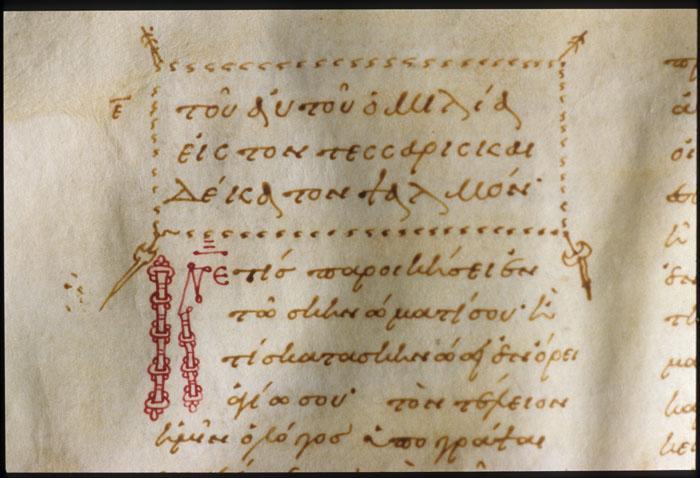 ε̅
τοῦ αὐτοῦ ὁμιλία
εἰς τον τεσσαρισκαι
δέκατον ψαλμόν·
Κ̅Ε̅ τίς παροικήσει ἐν
τῶ σκηνώματί σου· καὶ
τίς κατασκηνώσει ἐν ὄρει
ἁγίω σου· τὸν τέλειον
ἡμῖν ὁ λόγος ὑπογράψαι